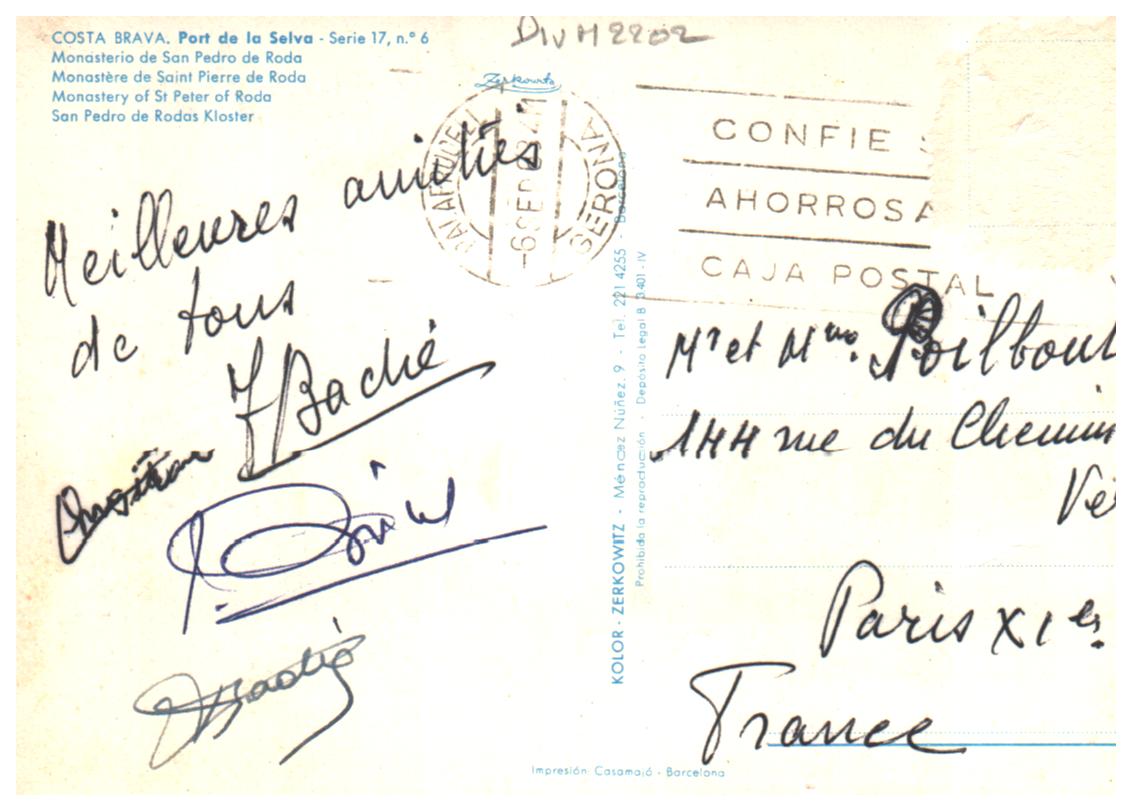 COSTA BRAVA. Port de la Selva - Serie 17, n.° 6
Monasterio de San Pedro de Roda
Monastère de Saint Pierre de Roda
Monastery of St Peter of Roda
San Pedro de Rodas Kloster
DIVM2202
Zerkowitz
-6 SEP
GERONA
CONFIE
AHORROS A
CAJA POSTAL
Meilleures amitiés
de tous
Badié
KOLOR - ZERKOWITZ - Méndez Núñez, 9 - Tel. 221 4255 - Barcelona
Prohibida la reproducción - Depósito Legal B 3.401 - IV
Mr et Mme. Poilbout
144 rue du Chemin
Ve
Paris XIes.
France
Impresión: Casamajó - Barcelona